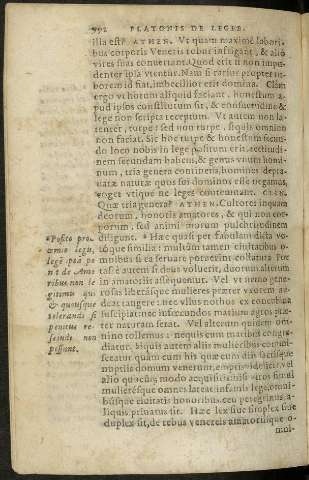 792 PLATONIS DE LEGE.
illa est? ATHEN. Vt quam maximè labori-
bus corporis Veneris robur infringat, & aliò
vires suas conuertant. Quod erit si non impu-
denter ipsa vtentur. Nam si rariùs propter ru-
borem id fiat, imbecillior erit domina. Clàm
ergo vt horum aliquid faciant, honestum a-
pud ipsos constitutum sit, & consuetudine &
lege non scripta receptum. Vt autem non la-
teat, turpe: sed non turpe, si quis omnino
non faciat. Sic hoc turpe & honestum secun-
do loco nobis in lege positum erit, rectitudi-
nem secundam habens, & genus vnum homi-
num, tria genera continens, homines depra-
uatæ naturæ quos sui dominos esse negamus,
coget vtique ne leges contemnant. CLIN.
Quæ tria genera? ATHEN. Cultores inquam
deorum, honoris amatores, & qui non cor-
porum, sed animi morum pulchritudinem
diligunt. * Hæc quasi per fabulam dicta vo-
toque similia: multùm tamen ciuitatibus o-
mnibus si ea seruare poterint, collatura. For
tasse autem si deus voluerit, duorum alterum
in amatoriis assequemur. Vel vt nemo gene-
rosas liberásque mulieres præter vxorem au-
deat tangere: nec vllus nothos ex concubina
suscipiat: nec infœcundos marium agros præ-
ter naturam serat. Vel alterum quidem om-
nino tollemus: nequis cum maribus congre-
diatur. Siquis autem aliis mulieribus commi-
sceatur quàm cum his quæ cum diis sacrisque
nuptiis domum venerunt, emptis scilicet, vel
alio quocunque modo acquisitis: nisi viros simul
mulierésque omnes lateat, infamis lege, omni-
búsque ciuitatis honoribus ceu peregrinus, a-
liquis priuatus sit. Hæc lex siue simplex siue
duplex sit, de rebus venereis amatoriisque o-
mni-
*Posito pro-
œmio legis,
legẽ ipsã po
nit de Amo
ribus non le
gitimis qui
& quousque
tolerandi si
penitus re-
scindi non
possunt.